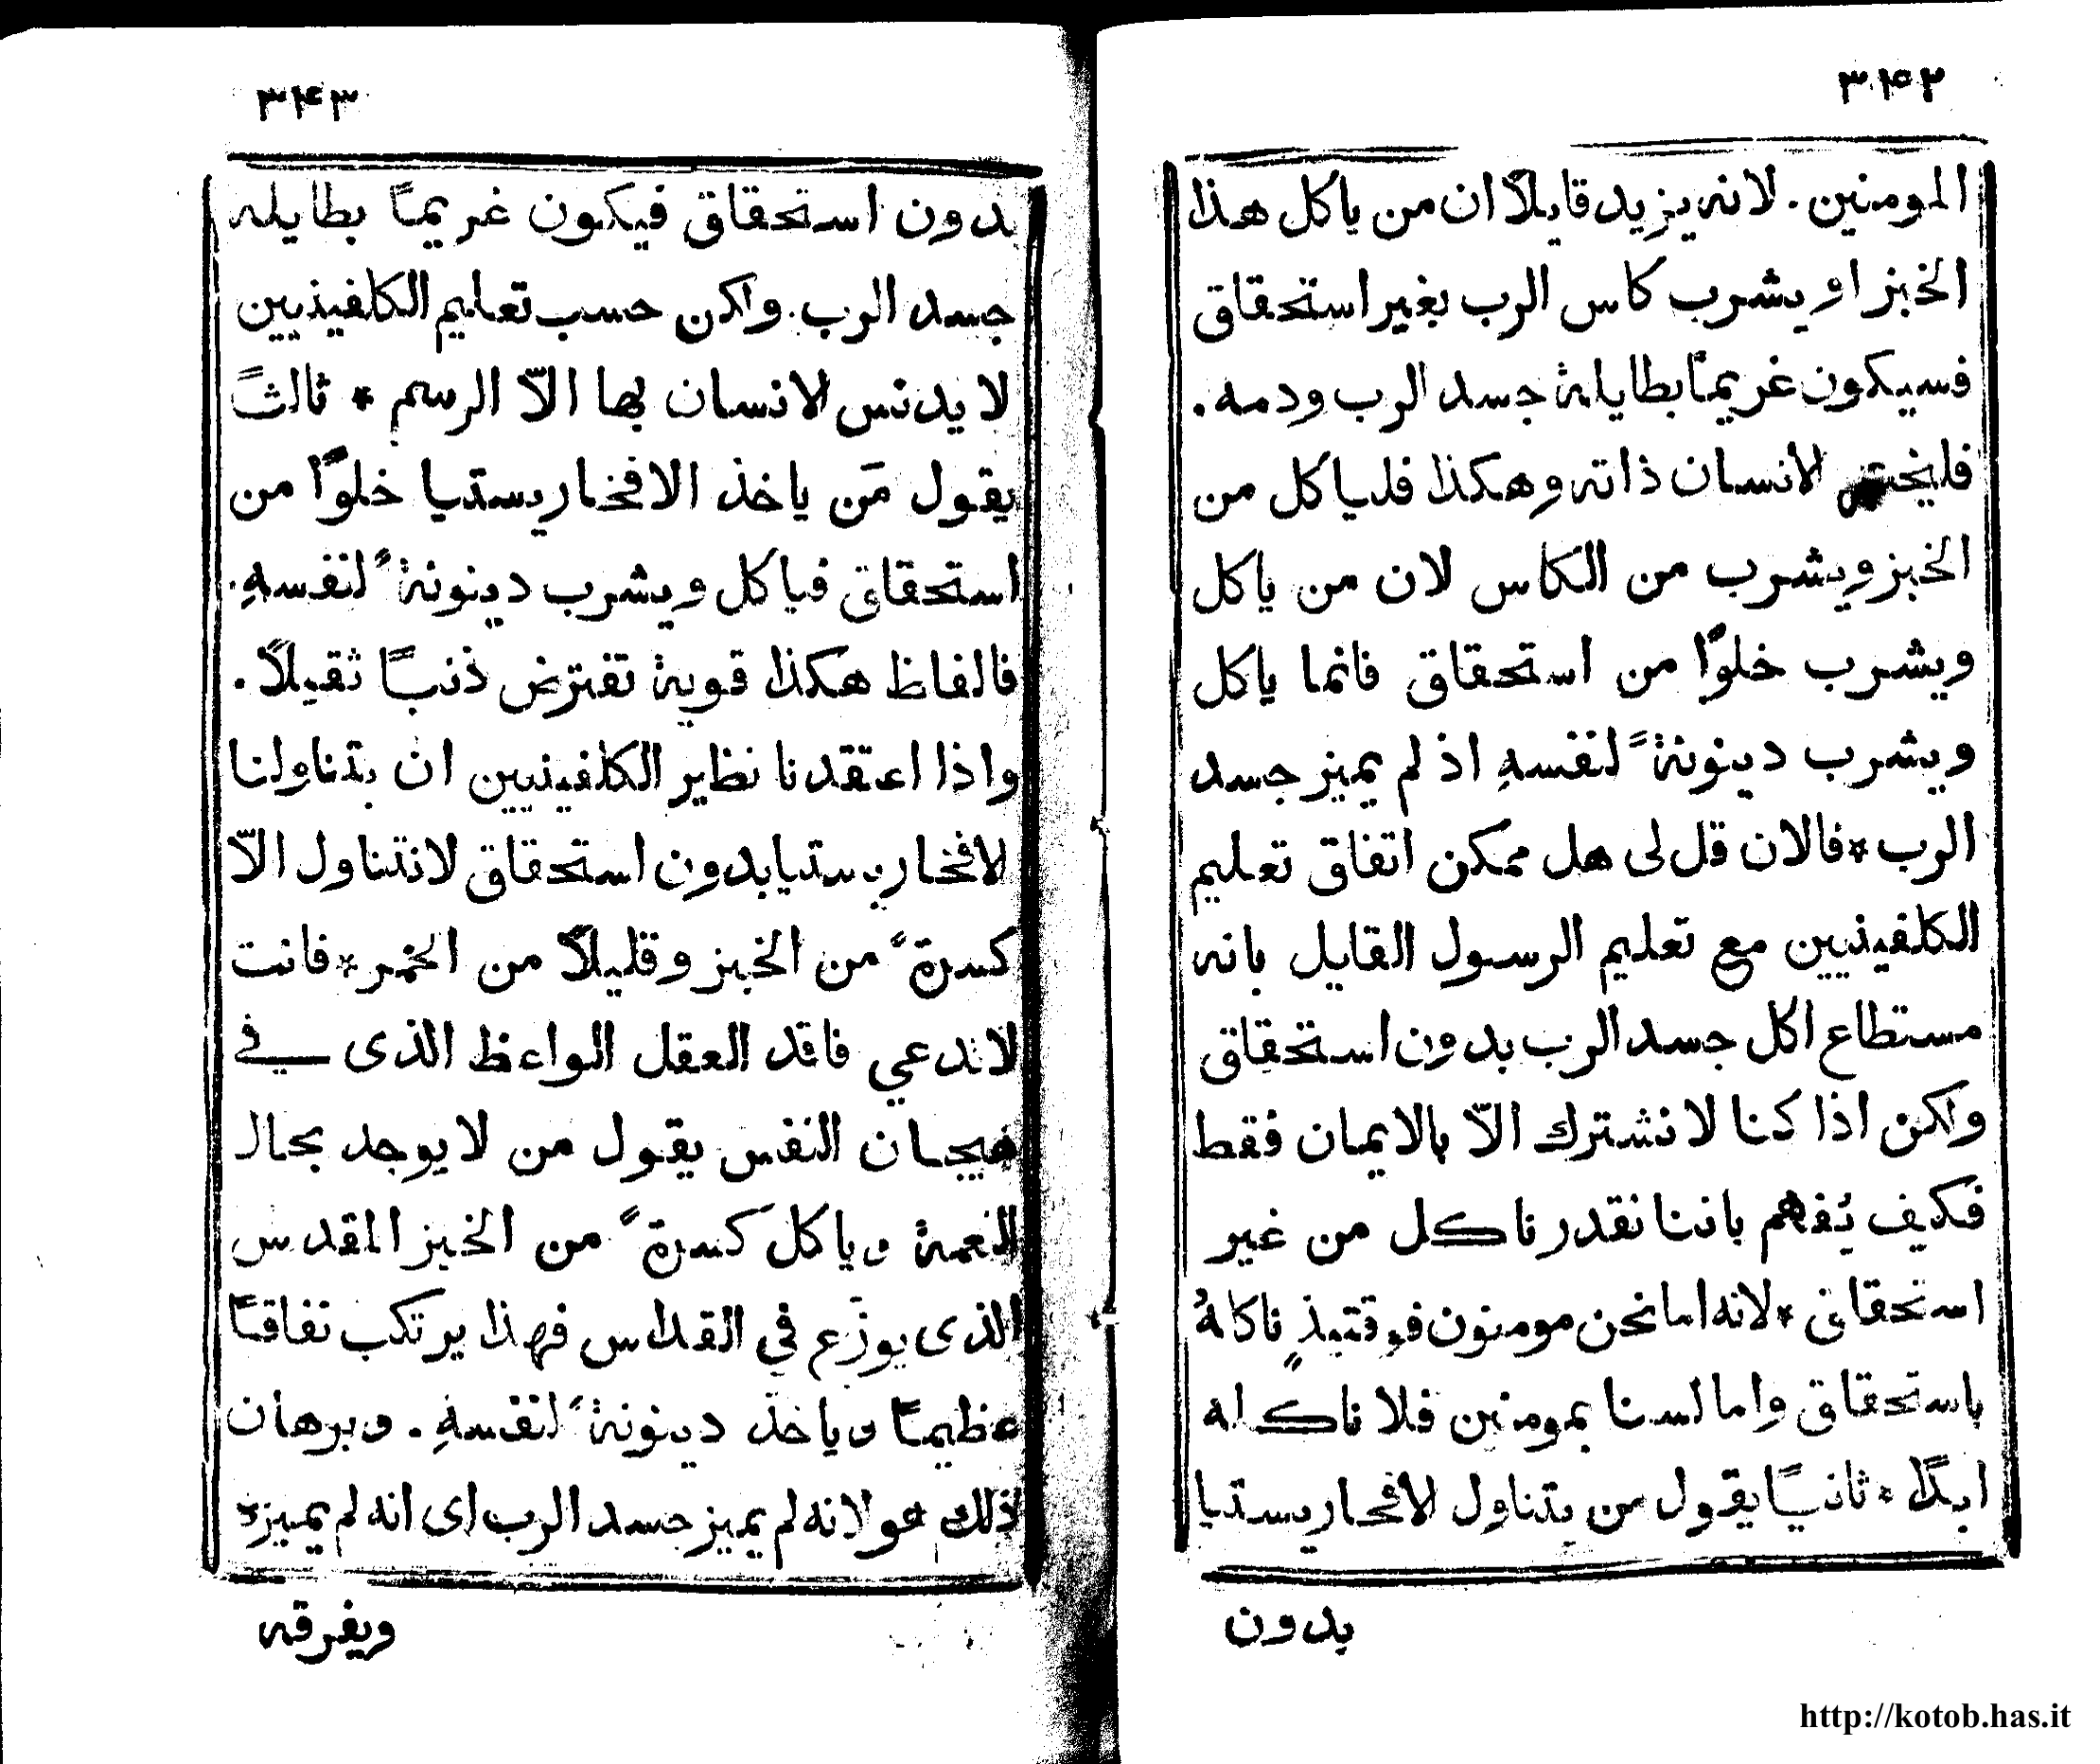 ٣٤٢
المومنين. لانه يزيد قايلاً ان من ياكل هذا
الخبز او يشرب كاس الرب بغير استحقاق
فسيكون غريمًا بطايلة جسد الرب ودمه.
الانسان ذاته وهكذا فلياكل من
الخبز ويشرب من الكاس لان من ياكل
ويشرب خلوًا من استحقاق فانما ياكل
ويشرب دينونةً لنفسهِ اذ لم يميز جسد
الرب * فالان قل لى هل ممكن اتفاق تعليم
الكلفينيين مع تعليم الرسول القايل بانه
مستطاع اكل جسد الرب بدون استحقاق
ولكن اذا كنا لا نشترك الاّ بالايمان فقط
فكيف يُفهم باننا نقدر ناكل من غير
استحقاق * لانه اما نحن مومنون فوقتيذٍ ناكلهُ
باستحقاق واما لسنا بمومنين فلا ناكله
ابدًا * ثانيًا يقول من يتناول الافخاريستيا
بدون
٣٤٣
بدون استحقاق فيكون غريمًا بطايلة
جسد الرب. ولكن حسب تعليم الكلفينيين
لا يدنس الانسان بها الاّ الرسم * ثالثًا
يقول مَن ياخذ الافخاريستيا خلوًا من
استحقاق فياكل ويشرب دينونةً لنفسهِ.
فالفاظ هكذا قوية تفترض ذنبًا ثقيلاً.
واذا اعتقدنا نظير الكلفينيين ان بتناولنا
الافخاريستيا بدون استحقاق لا نتناول الاّ
كسرةً من الخبز وقليلاً من الخمر * فانت
لا تدعي فاقد العقل الواعظ الذى في
هيجان النفس يقول من لا يوجد بحال
النعمة وياكل كسرةً من الخبز المقدس
الذى يوزَع في القداس فهذا يرتكب نفاقًا
عظيمًا وياخذ دينونةً لنفسهِ. وبرهان
ذلك هو لانه لم يميز جسد الرب اى انه لم يميزه
ويفرقه
http://kotob.has.it